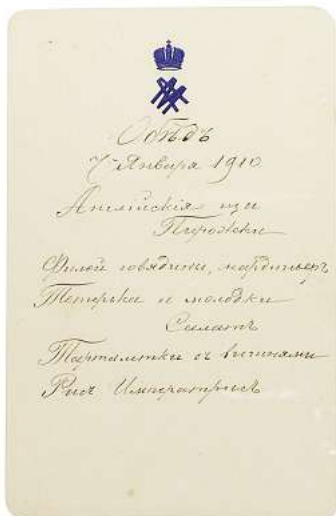 Обѣдъ
7 Января 1910
Англійскія щи
Пирожки
Филей говядины, жардиньеръ
Тетерьки и молодки
Салатъ
Тарталетки съ вишнями
Рисъ Императрисъ